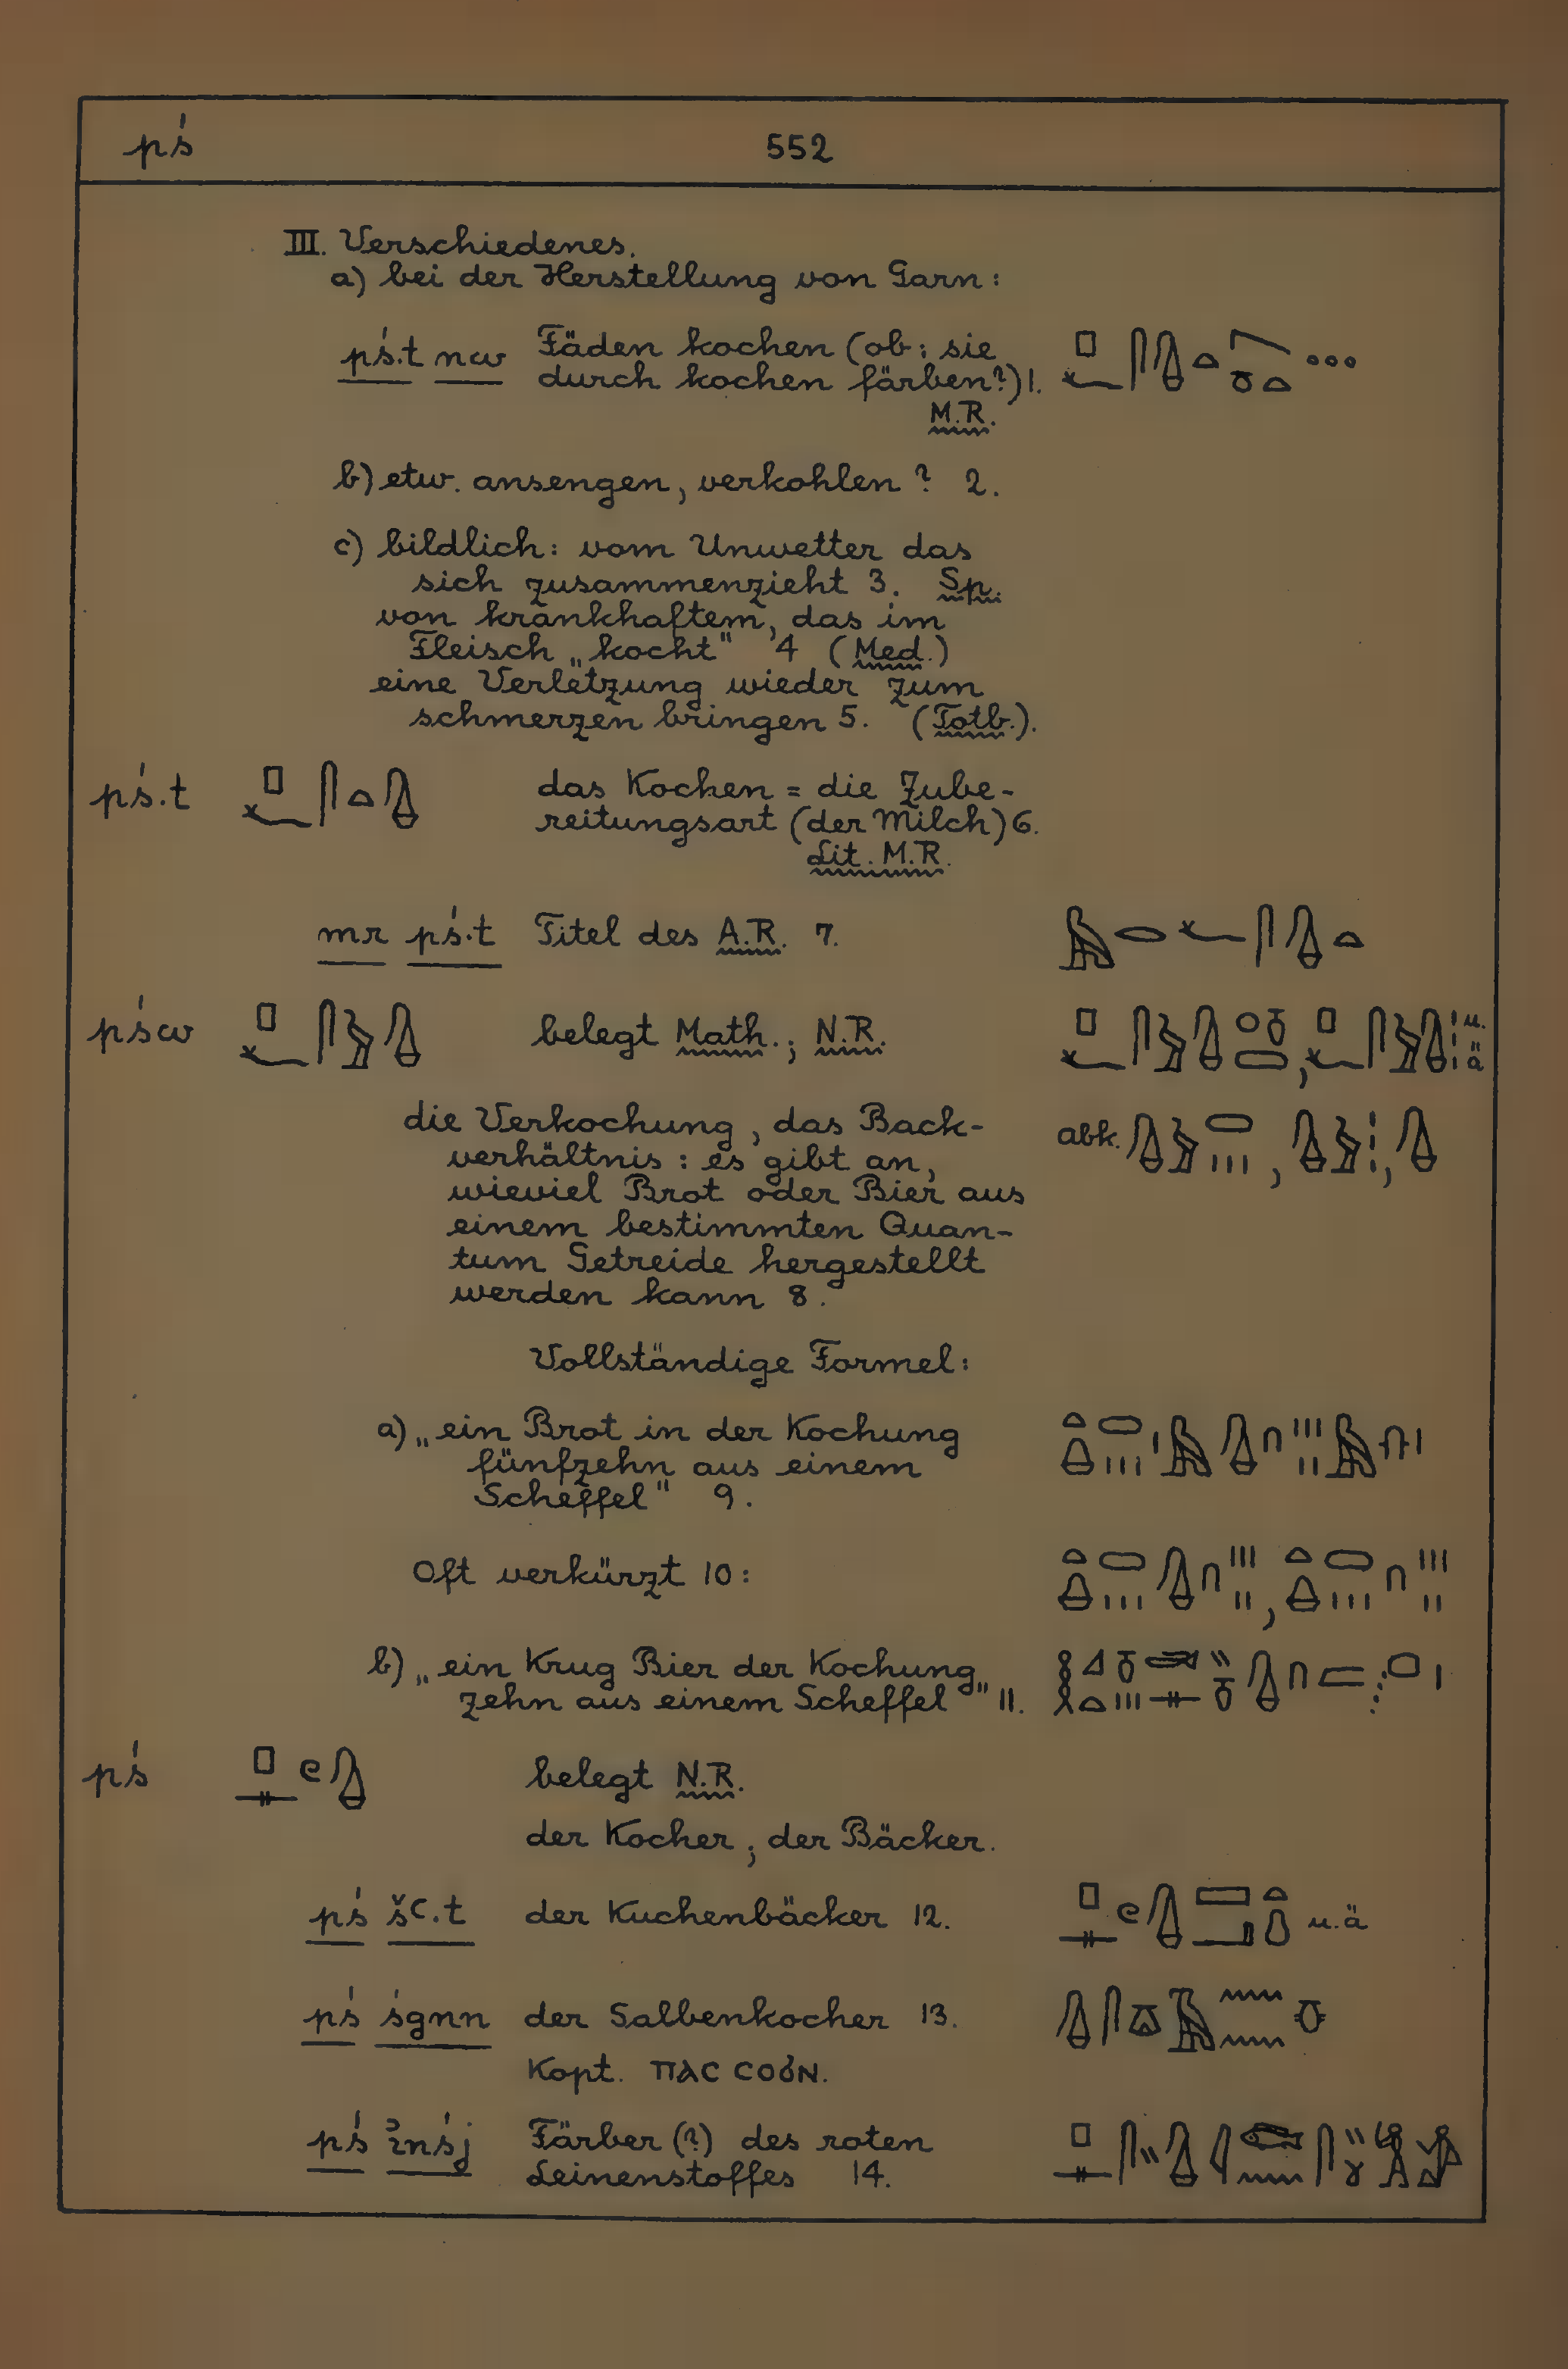 pś 552
III. Verschiedenes.
a) bei der Herstellung von Garn:
pś.t nw Fäden kochen (ob: sie
durch kochen färben?) 1.
M.R.
b) etw. ansengen, verkohlen? 2.
c) bildlich: vom Unwetter das
sich zusammenzieht 3. Sp.
von krankhaftem, das im
Fleisch „kocht" 4 (Med.)
eine Verletzung wieder zum
schmerzen bringen 5. (Totb.).
pś.t das Kochen = die Zube-
reitungsart (der Milch) 6.
Lit. M.R.
mr pś.t Titel des A.R. 7.
pśw belegt Math.; N.R. u. ä
die Verkochung, das Back- abk.
verhältnis: es gibt an,
wieviel Brot oder Bier aus
einem bestimmten Quan-
tum Getreide hergestellt
werden kann 8.
Vollständige Formel:
a) „ein Brot in der Kochung
fünfzehn aus einem
Scheffel" 9.
Oft verkürzt 10:
b) „ein Krug Bier der Kochung
zehn aus einem Scheffel" 11.
pś belegt N.R.
der Kocher; der Bäcker.
pś šꜥ.t der Kuchenbäcker 12. u.ä
pś śgnn der Salbenkocher 13.
Kopt. ⲡⲁⲥ ⲥⲟϭⲛ.
pś inśj Färber (?) des roten
Leinenstoffes 14.